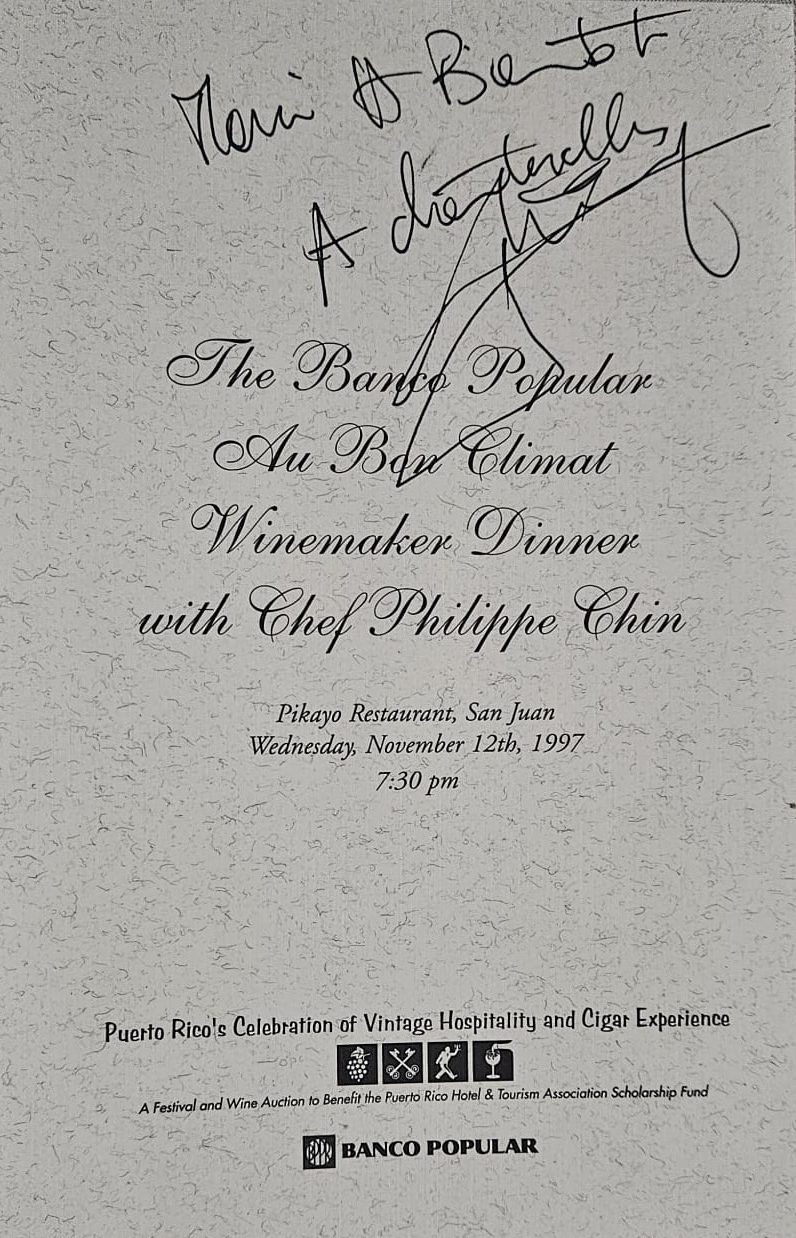 Merci A Bientot
A chanterelles
The Banco Popular
Au Bon Climat
Winemaker Dinner
with Chef Philippe Chin
Pikayo Restaurant, San Juan
Wednesday, November 12th, 1997
7:30 pm
Puerto Rico's Celebration of Vintage Hospitality and Cigar Experience
A Festival and Wine Auction to Benefit the Puerto Rico Hotel & Tourism Association Scholarship Fund
BANCO POPULAR